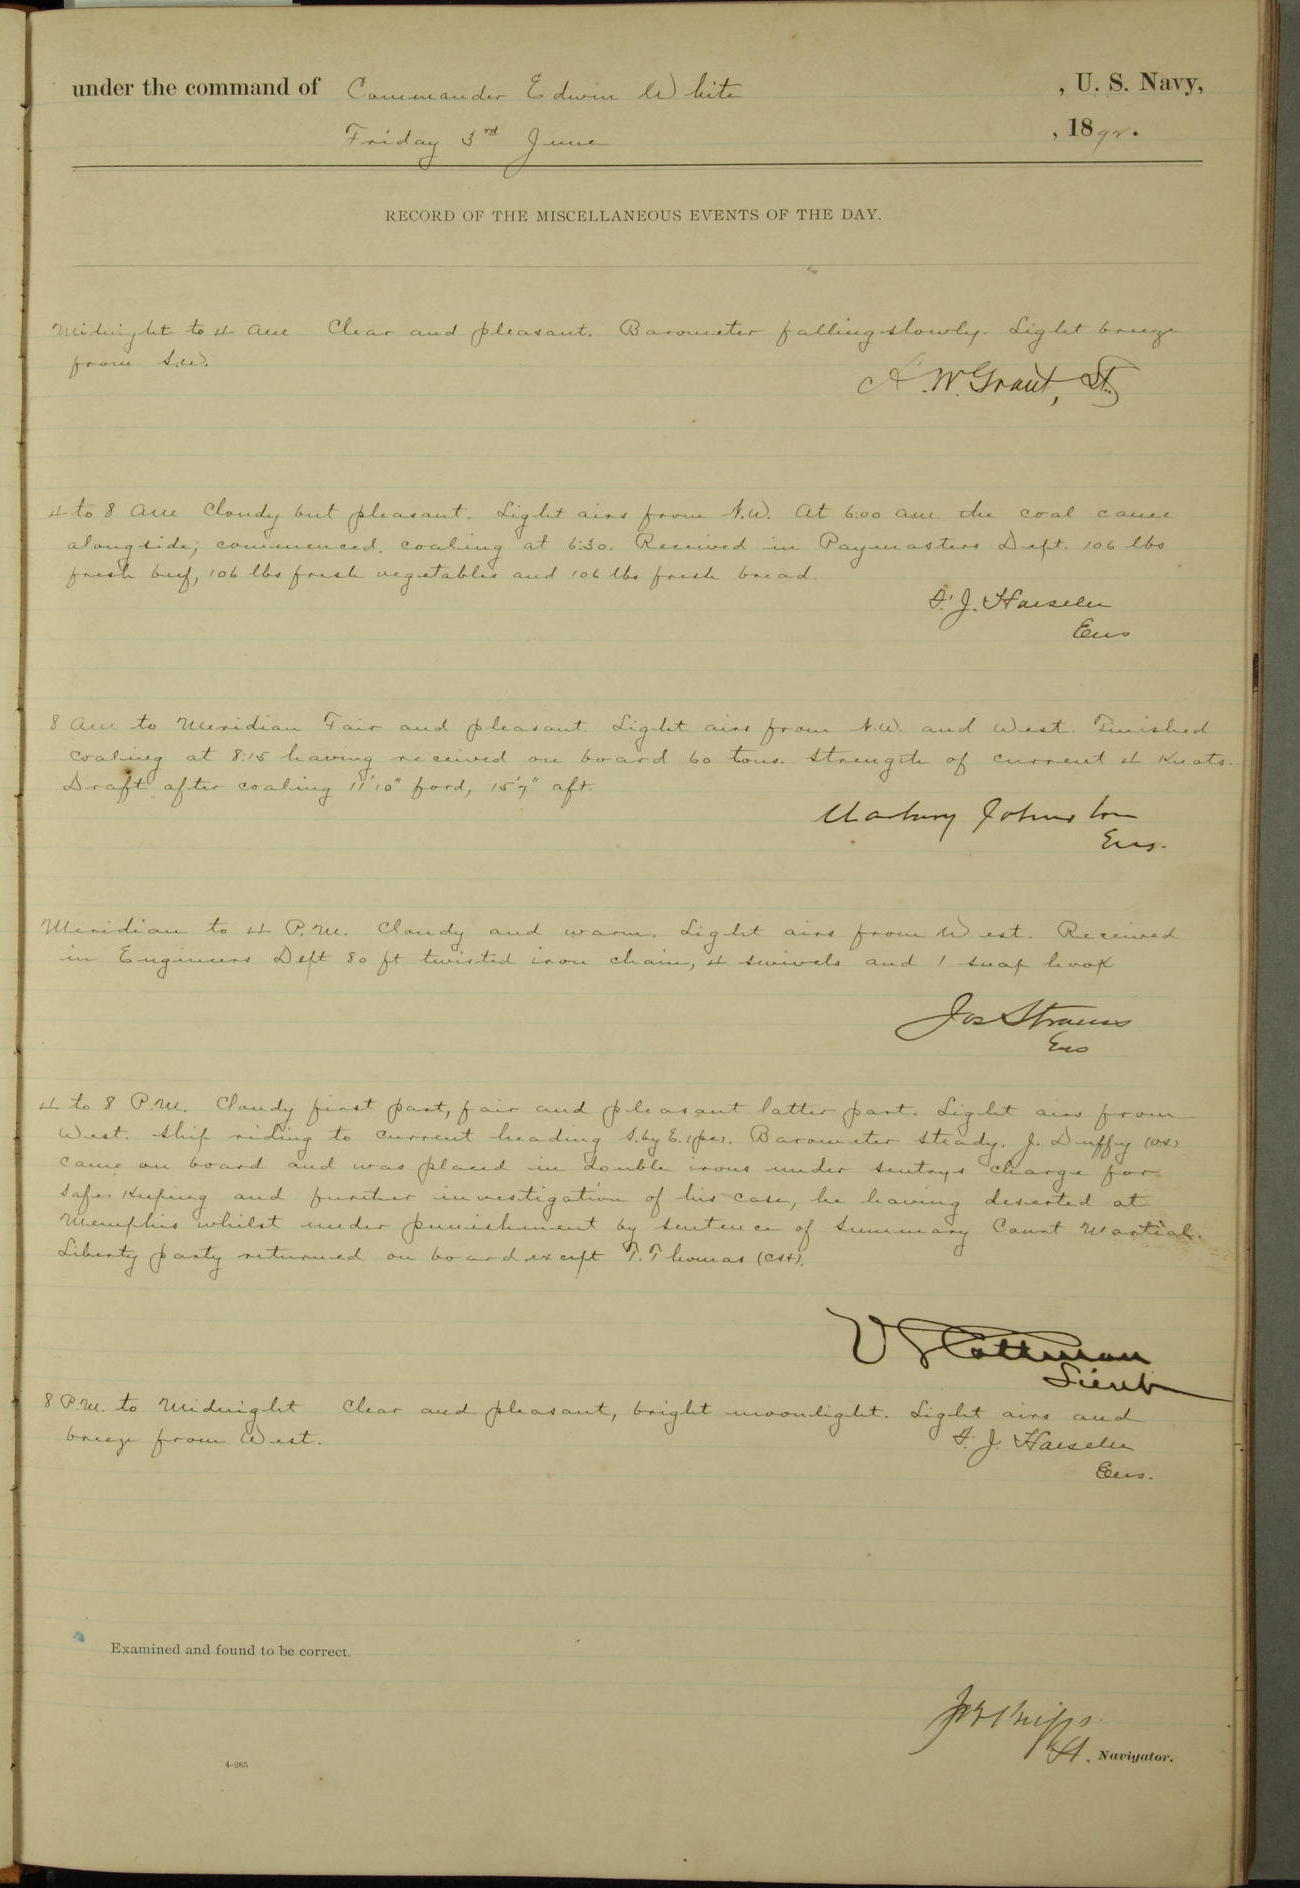 under the command of Commander Edwin White, U. S. Navy,
Friday 3rd June, 1892.
RECORD OF THE MISCELLANEOUS EVENTS OF THE DAY.
Midnight to 4 am Clear and pleasant. Barometer falling slowly. Light breeze
from S.W.
A. W. Grant, Lt.
4 to 8 am Cloudy but pleasant. Light airs from N.W. At 6:00 am the coal came
alongside; commenced coaling at 6:30. Received in Paymasters Dept. 106 lbs
fresh beef, 106 lbs fresh vegetables and 106 lbs fresh bread.
F. J. Haeseler
Ens
8 am to Meridian Fair and pleasant. Light airs from N.W. and West. Finished
coaling at 8:15 having received on board 60 tons. Strength of current 4 Knots.
Draft after coaling 11'10" ford, 15'7" aft.
Marbury Johnston
Ens.
Meridian to 4 P.M. Cloudy and warm. Light airs from West. Received
in Engineers Dept 80 ft twisted iron chain, 4 swivels and 1 snap hook
Jos Strauss
Ens
4 to 8 P.M. Cloudy first part, fair and pleasant latter part. Light airs from
West. Ship riding to current heading S. by E. (pc). Barometer steady. J. Duffy (OS)
came on board and was placed in double irons under sentrys charge for
safe Keeping and further investigation of his case, he having deserted at
Memphis whilst under punishment by sentence of Summary Court Martial.
Liberty party returned on board except T. Thomas
V S Cottman
Lieut
8 P.M. to Midnight Clear and pleasant, bright moonlight. Light airs and
breeze from West.
F. J. Haeseler
Ens.
Examined and found to be correct.
Lt. Navigator.
4-265